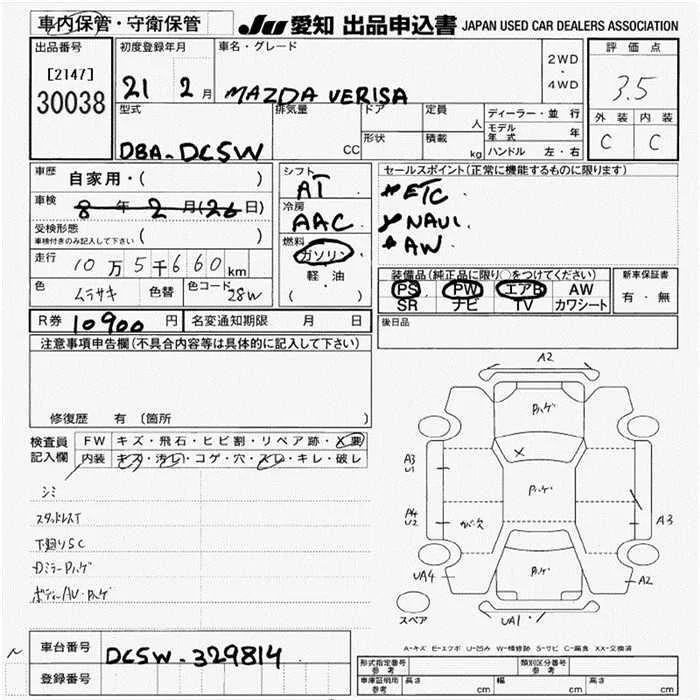 車内保管・守衛保管
JU 愛知 出品申込書 JAPAN USED CAR DEALERS ASSOCIATION
出品番号
[2147]
30038
初度登録年月
21 2月
車名・グレード
MAZDA VERISA
2WD
・
4WD
評価点
3.5
外装 内装
C C
型式
DBA-DC5W
排気量
CC
ドア
形状
定員
人
積載
kg
ディーラー・並行
モデル年式 年
ハンドル 左・右
車歴
自家用・( )
車検
8年2月(26日)
受検形態
車検付きのみ記入して下さい ( )
走行
10万5千660km
色 ムラサキ 色替 色コード 28W
シフト
AT
冷房
AAC
燃料
ガソリン
軽・油
( )
セールスポイント(正常に機能するものに限ります)
ETC
NAVI
AW
装備品(純正品に限り○をつけてください)
PS PW エアB AW
SR ナビ TV カワシート
新車保証書
有・無
R券 10900円 名変通知期限 月 日
後日品
注意事項申告欄(不具合内容等は具体的に記入して下さい)
修復歴 有(箇所 )
検査員
記入欄
FW キズ・飛石・ヒビ割・リペア跡・X要
内装 キズ・汚レ・コゲ・穴・スレ・キレ・破レ
シミ
スタッドレスT
下廻りSC
Dミラー Pハゲ
ボディーAU・Pハゲ
A2
Pハゲ
X
A3
U1
Pハゲ
A4
U2
A3
UA4
Pハゲ
A2
UA1
スペア
A-キズ E-エクボ U-凹み W-補修跡 S-サビ C-腐食 XX-交換済
車台番号
DC5W-329814
登録番号
形式指定番号
参考
類別区分番号
参考
車庫証明用
参考
長さ cm
幅 cm
高さ cm